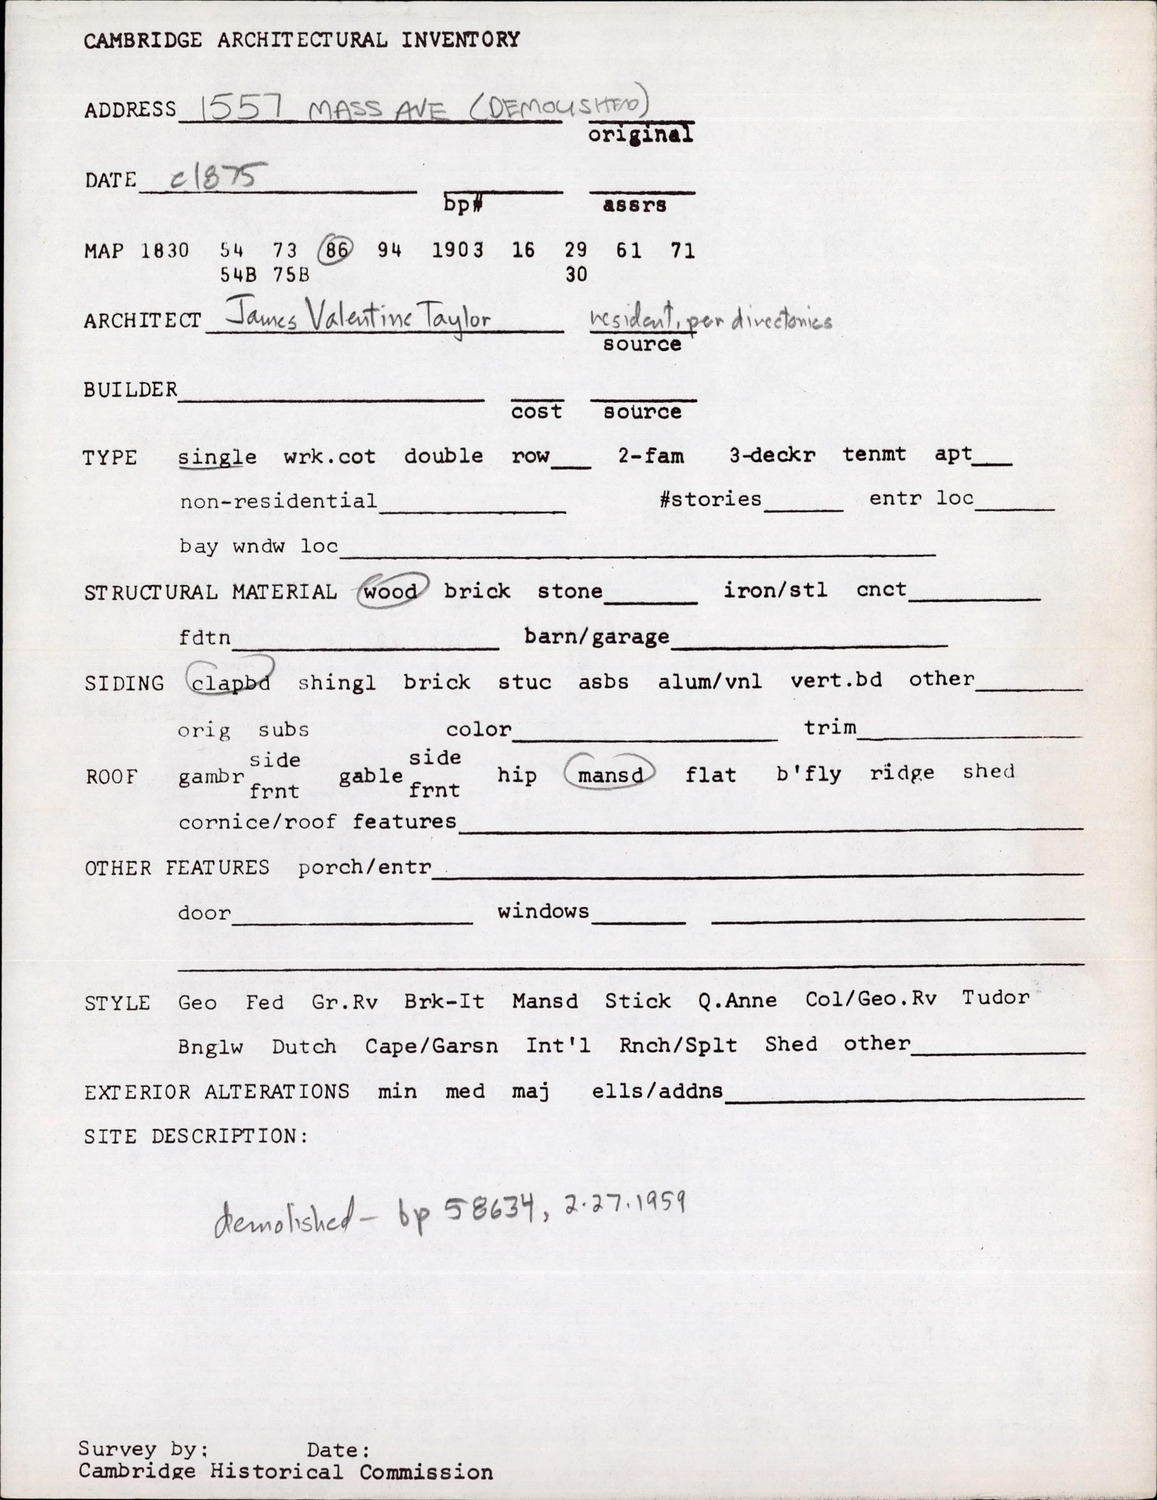 CAMBRIDGE ARCHITECTURAL INVENTORY
ADDRESS 1557 MASS AVE (DEMOLISHED)
original
DATE c1875
bp# assrs
MAP 1830 54 73 86 94 1903 16 29 61 71
54B 75B 30
ARCHITECT James Valentine Taylor resident, per directories
source
BUILDER
cost source
TYPE single wrk.cot double row___ 2-fam 3-deckr tenmt apt___
non-residential #stories entr loc
bay wndw loc
STRUCTURAL MATERIAL wood brick stone iron/stl cnct
fdtn barn/garage
SIDING clapbd shingl brick stuc asbs alum/vnl vert.bd other
orig subs color trim
side side
ROOF gambr gable hip mansd flat b'fly ridge shed
frnt frnt
cornice/roof features
OTHER FEATURES porch/entr
door windows
STYLE Geo Fed Gr.Rv Brk-It Mansd Stick Q.Anne Col/Geo.Rv Tudor
Bnglw Dutch Cape/Garsn Int'l Rnch/Splt Shed other
EXTERIOR ALTERATIONS min med maj ells/addns
SITE DESCRIPTION:
demolished - bp 58634, 2.27.1959
Survey by: Date:
Cambridge Historical Commission